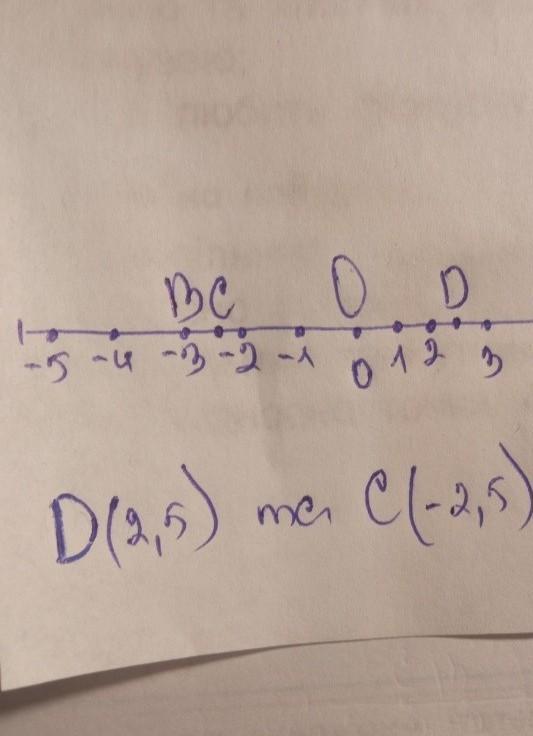 B C O D
-5 -4 -3 -2 -1 0 1 2 3
D(2,5) та C(-2,5)